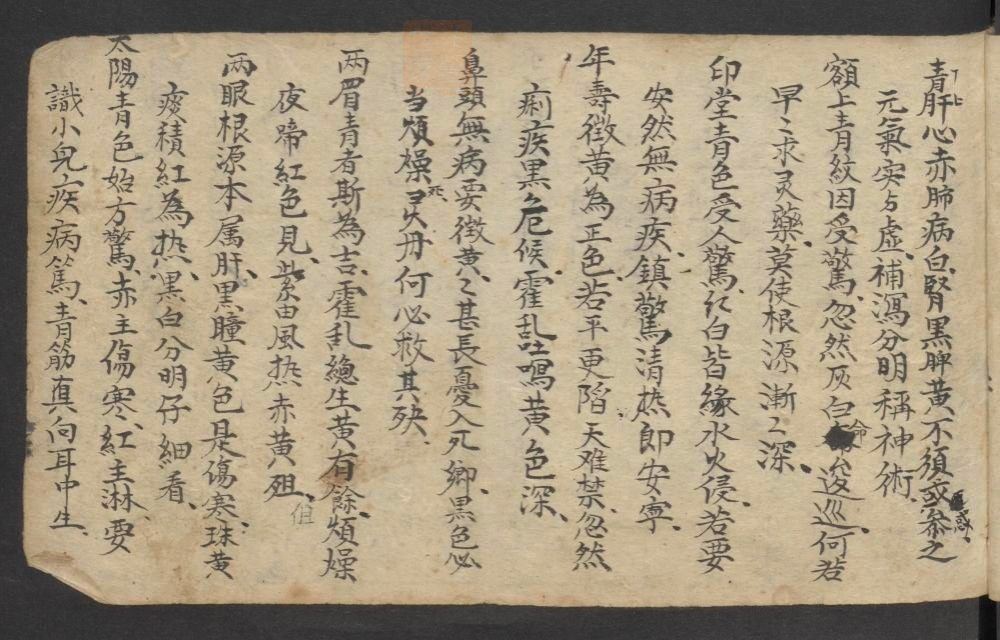 青肝心赤肺病白肾黑脾黄不須惑参之
元氣实与虚補瀉分明稱神術
額上青紋因受驚忽然灰白命逡巡何若
早〻求灵藥莫使根源漸〻深
印堂青色受人驚红白皆緣水火侵若要
安然無病疾鎮驚清热即安寧
年壽微黄為正色若平更陷天难禁忽然
痢疾黑危候霍乱吐鳴黄色深
鼻頭無病要微黄〻甚長憂入死鄉黑色必
当煩燥死何必救其殃
兩眉青者斯為吉霍乱總生黄有餘煩燥
夜啼紅色見紫由風热赤黄殂
兩眼根源本属肝黑瞳黄色是傷寒珠黄
痰積紅為热黑白分明仔細看
太陽青色始方驚赤主傷寒紅主淋要
識小兒疾病篤青筋真向耳中生